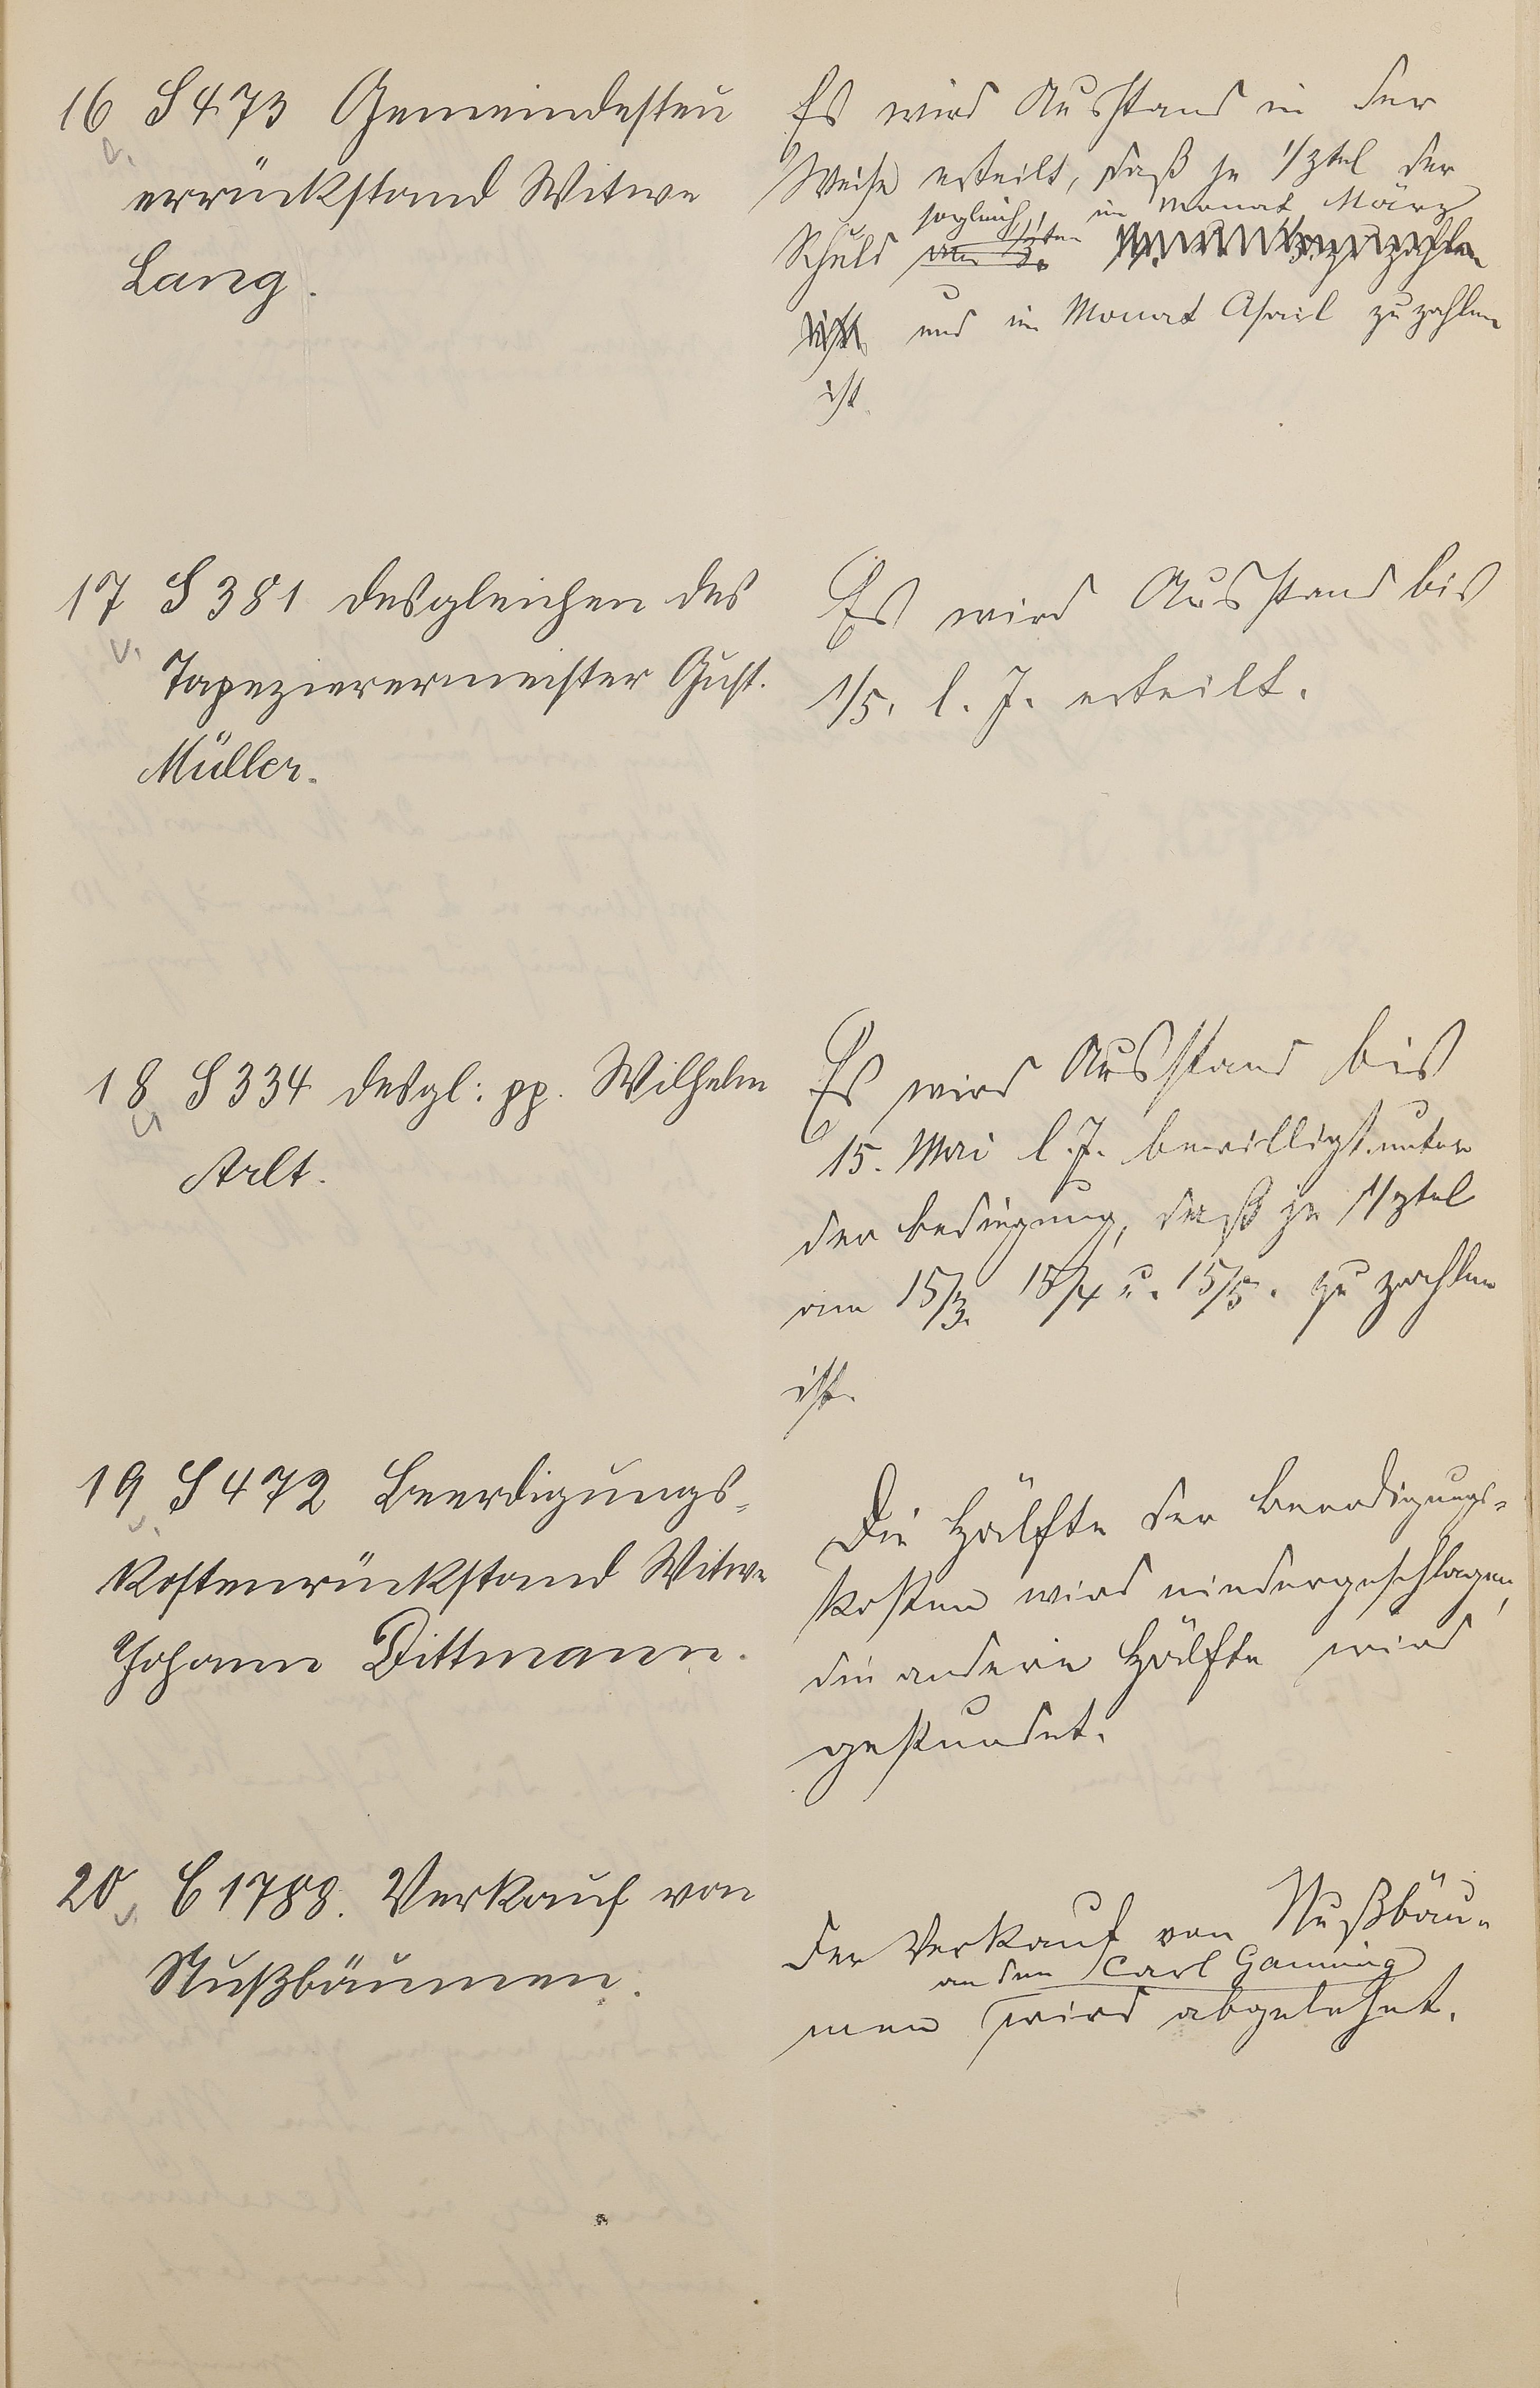 16 S 473 Gemeindesteu
errückstand Witwe
Lang.
Es wird Ausstand in der
Weise erteilt, daß je 1/3tel der
sogleich, 1/3tel im Monat März
Schuld am zu zahlen
ist und im Monat April zu zahlen
ist.
17 S 381 desgleichen des
Tapezierermeister Gust.
Müller.
Es wird Ausstand bis
1/5. l. J. erteilt.
18 S 334 desgl: pp. Wilhelm
Arlt.
Es wird Ausstand bis
15. Mai l. J. bewilligt unter
der Bedingung, daß je 1/3tel
am 15/3. 15/4 u. 15/5. zu zahlen
ist.
19 S 472 Beerdigungs-
kostenrückstand Witwe
Johann Dittmann.
Die Hälfte der Beerdigungs-
kosten wird niedergeschlagen,
die andere Hälfte wird
gestundet.
20 C 1788. Verkauf von
Nußbäumen.
Der Verkauf von Nußbäu-
an den Carl Ganning
men wird abgelehnt.